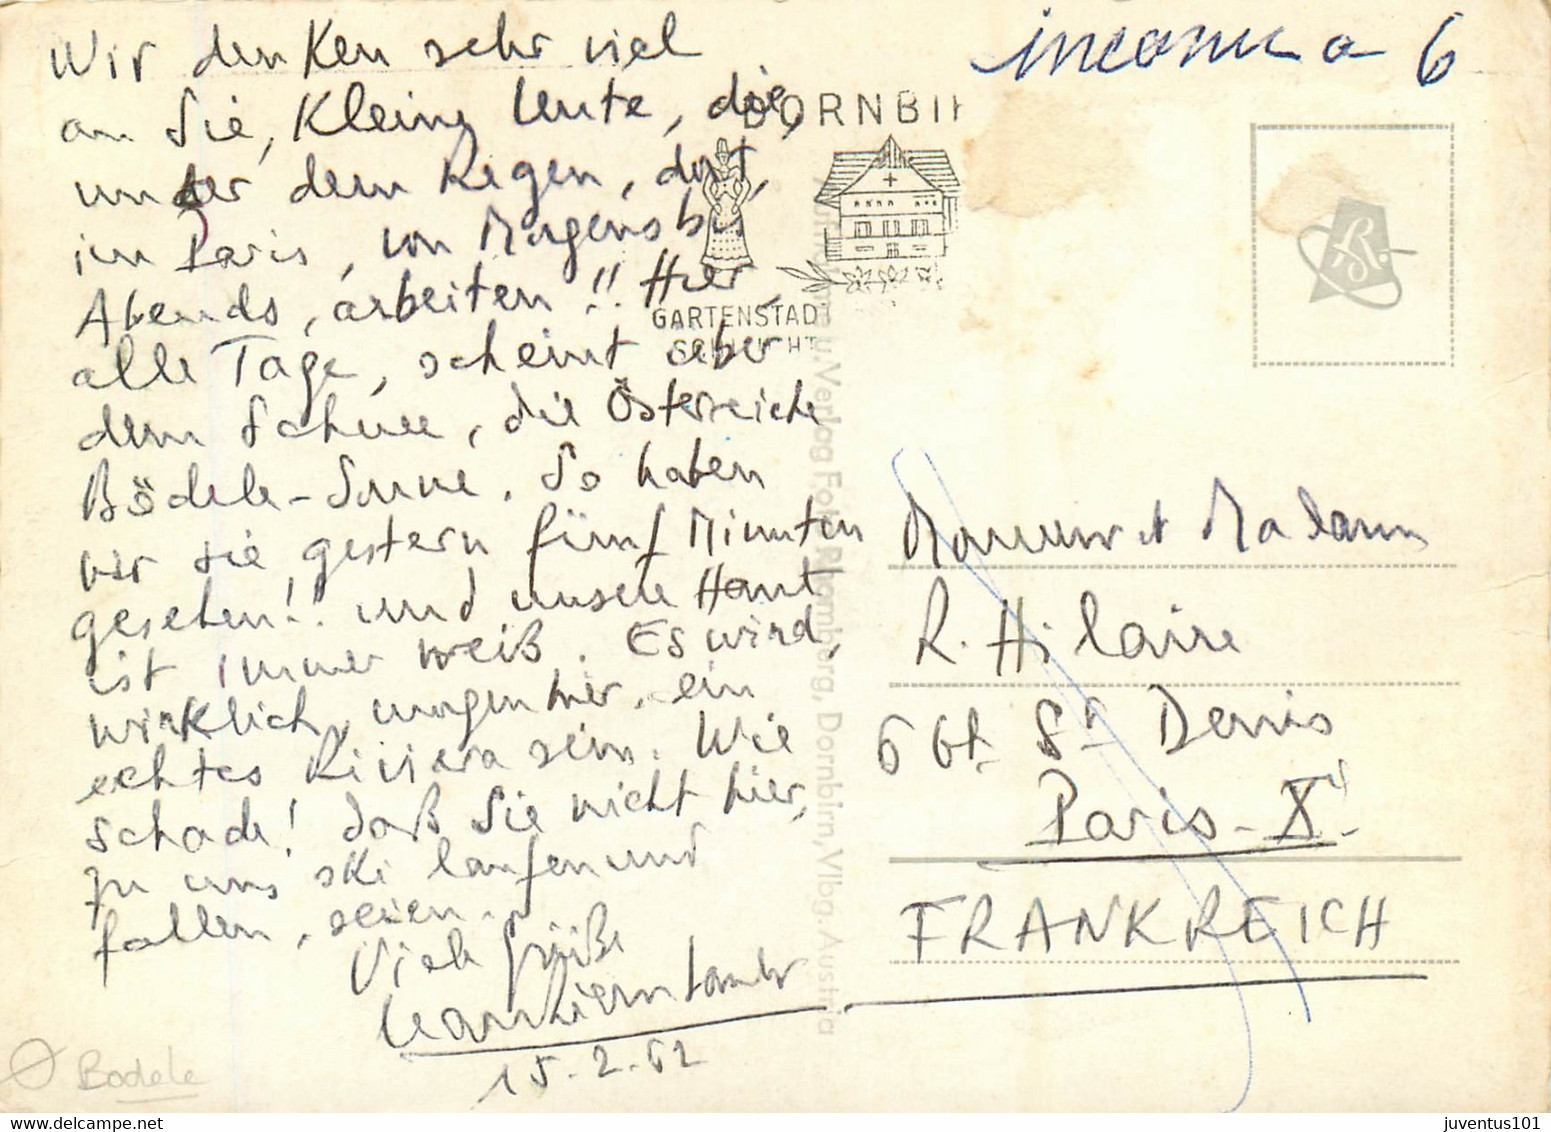 Wir denken sehr viel
an Sie, Kleine Leute, die,
unter dem Regen, dort,
in Paris, von Morgens bis
Abends, arbeiten!! Hier,
alle Tage, scheint über
dem Schnee, die Österreiche
Bödele-Sonne. So haben
wir sie, gestern fünf Minuten
gesehen!! und unsere Haut
ist immer weiß. Es wird,
wirklich, morgen hier, ein
echtes Riviera sein. Wie
schade! daß Sie nicht hier,
zu uns ski laufen und
fallen, seien.
Viele Grüße
15.2.62
Bodele
inconnu a 6
DORNBI
GARTENSTADT
Aufnahme u. Verlag Foto Rhomberg, Dornbirn, Vlbg. Austria
Monsieur et Madame
R. Hilaire
6 Bt St Denis
Paris-X
FRANKREICH
juventus101